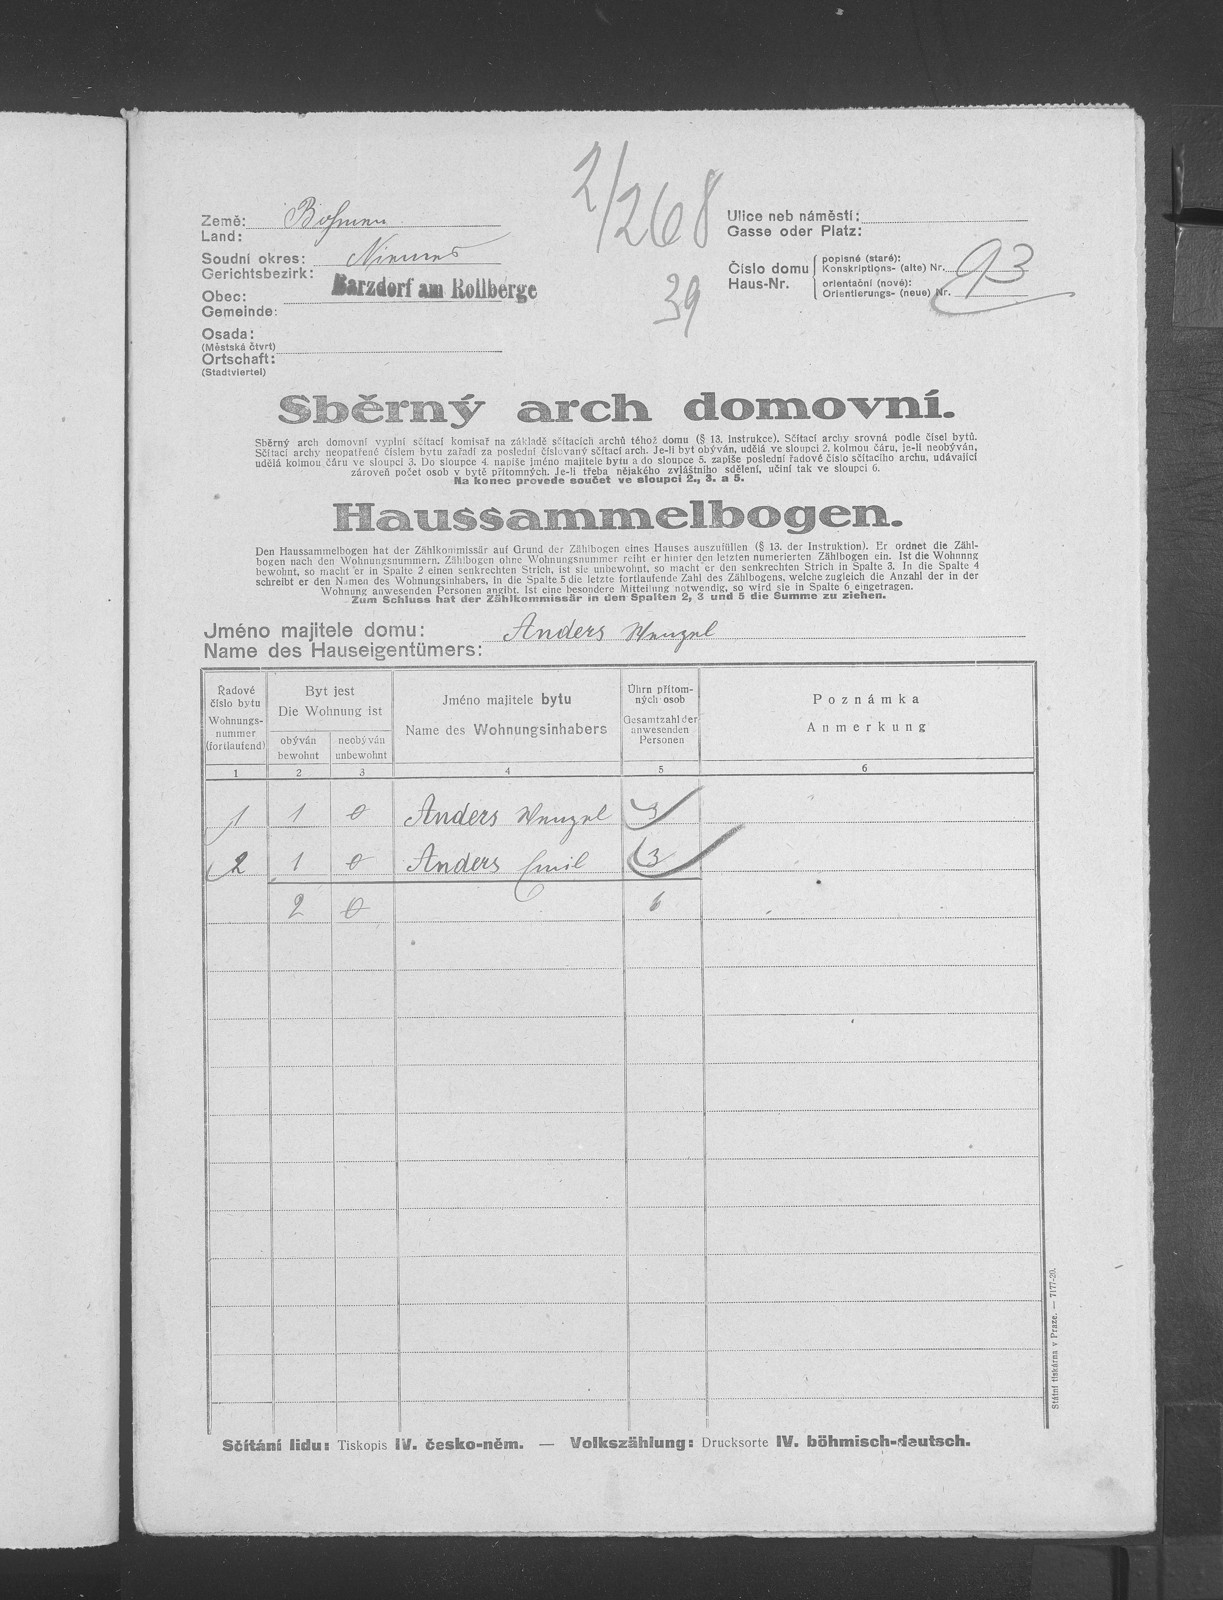 2/268
39
Země: Böhmen
Land:
Soudní okres: Niemes
Gerichtsbezirk:
Obec: Barzdorf am Rollberge
Gemeinde:
Osada:
(Městská čtvrt)
Ortschaft:
(Stadtviertel)
Ulice neb náměstí:
Gasse oder Platz:
Číslo domu
Haus-Nr.
popisné (staré):
Konskriptions- (alte) Nr. 93
orientační (nové):
Orientierungs- (neue) Nr.
Sběrný arch domovní.
Sběrný arch domovní vyplní sčítací komisař na základě sčítacích archů téhož domu (§ 13. instrukce). Sčítací archy srovná podle čísel bytů.
Sčítací archy neopatřené číslem bytu zařadí za poslední číslovaný sčítací arch. Je-li byt obýván, udělá ve sloupci 2. kolmou čáru, je-li neobýván,
udělá kolmou čáru ve sloupci 3. Do sloupce 4. napíše jméno majitele bytu a do sloupce 5. zapíše poslední řadové číslo sčítacího archu, udávající
zároveň počet osob v bytě přítomných. Je-li třeba nějakého zvláštního sdělení, učiní tak ve sloupci 6.
Na konec provede součet ve sloupci 2., 3. a 5.
Haussammelbogen.
Den Haussammelbogen hat der Zählkommissär auf Grund der Zählbogen eines Hauses auszufüllen (§ 13. der Instruktion). Er ordnet die Zähl-
bogen nach den Wohnungsnummern. Zählbogen ohne Wohnungsnummer reiht er hinter den letzten numerierten Zählbogen ein. Ist die Wohnung
bewohnt, so macht er in Spalte 2 einen senkrechten Strich, ist sie unbewohnt, so macht er den senkrechten Strich in Spalte 3. In die Spalte 4
schreibt er den Namen des Wohnungsinhabers, in die Spalte 5 die letzte fortlaufende Zahl des Zählbogens, welche zugleich die Anzahl der in der
Wohnung anwesenden Personen angibt. Ist eine besondere Mitteilung notwendig, so wird sie in Spalte 6 eingetragen.
Zum Schluss hat der Zählkommissär in den Spalten 2, 3 und 5 die Summe zu ziehen.
Jméno majitele domu: Anders Wenzel
Name des Hauseigentümers:
Řadové
číslo bytu
Wohnungs-
nummer
(fortlaufend)
Byt jest
Die Wohnung ist
obýván
bewohnt
neobýván
unbewohnt
Jméno majitele bytu
Name des Wohnungsinhabers
Úhrn přítom-
ných osob
Gesamtzahl der
anwesenden
Personen
Poznámka
Anmerkung
1 2 3 4 5 6
1 1 0 Anders Wenzel 3
2 1 0 Anders Emil 3
2 0 6
Sčítání lidu: Tiskopis IV. česko-něm. — Volkszählung: Drucksorte IV. böhmisch-deutsch.
Státní tiskárna v Praze. — 7177-20.